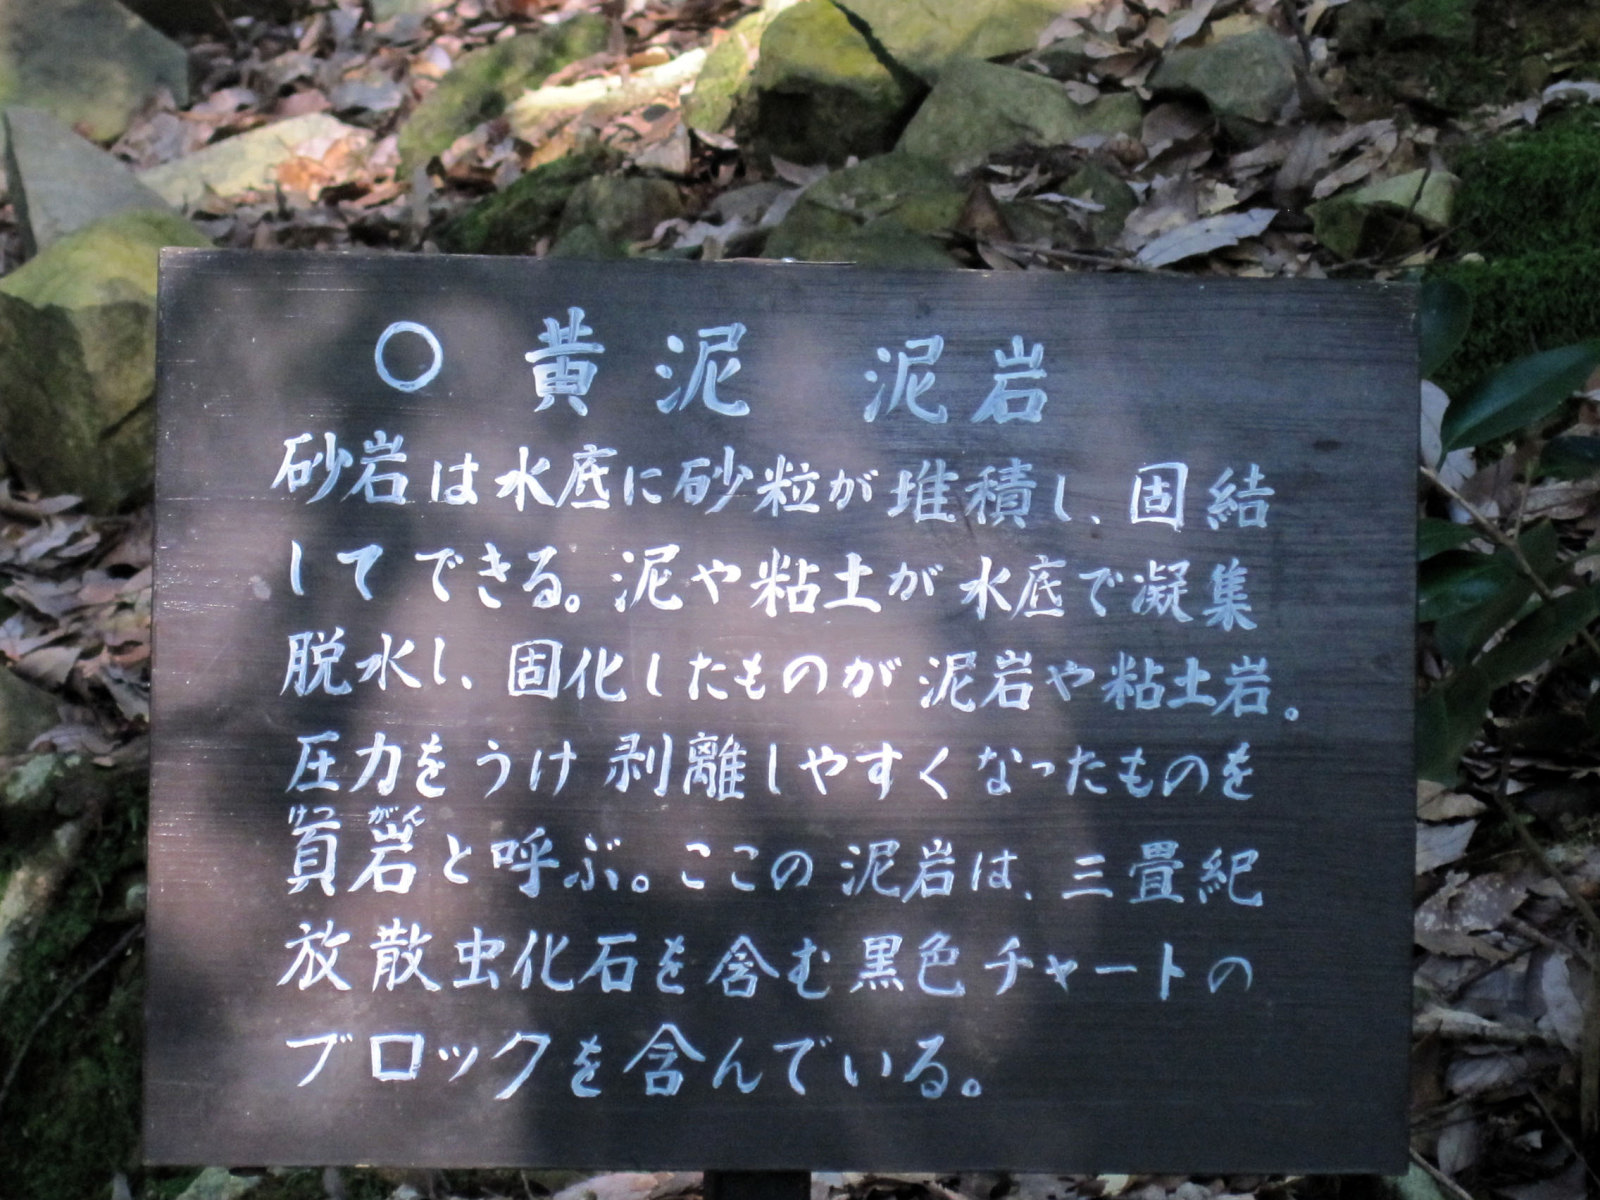 ○ 黄泥 泥岩
砂岩は水底に砂粒が堆積し、固結
してできる。泥や粘土が水底で凝集
脱水し、固化したものが泥岩や粘土岩。
圧力をうけ剥離しやすくなったものを
けつ がん
頁岩と呼ぶ。ここの泥岩は、三畳紀
放散虫化石を含む黒色チャートの
ブロックを含んでいる。